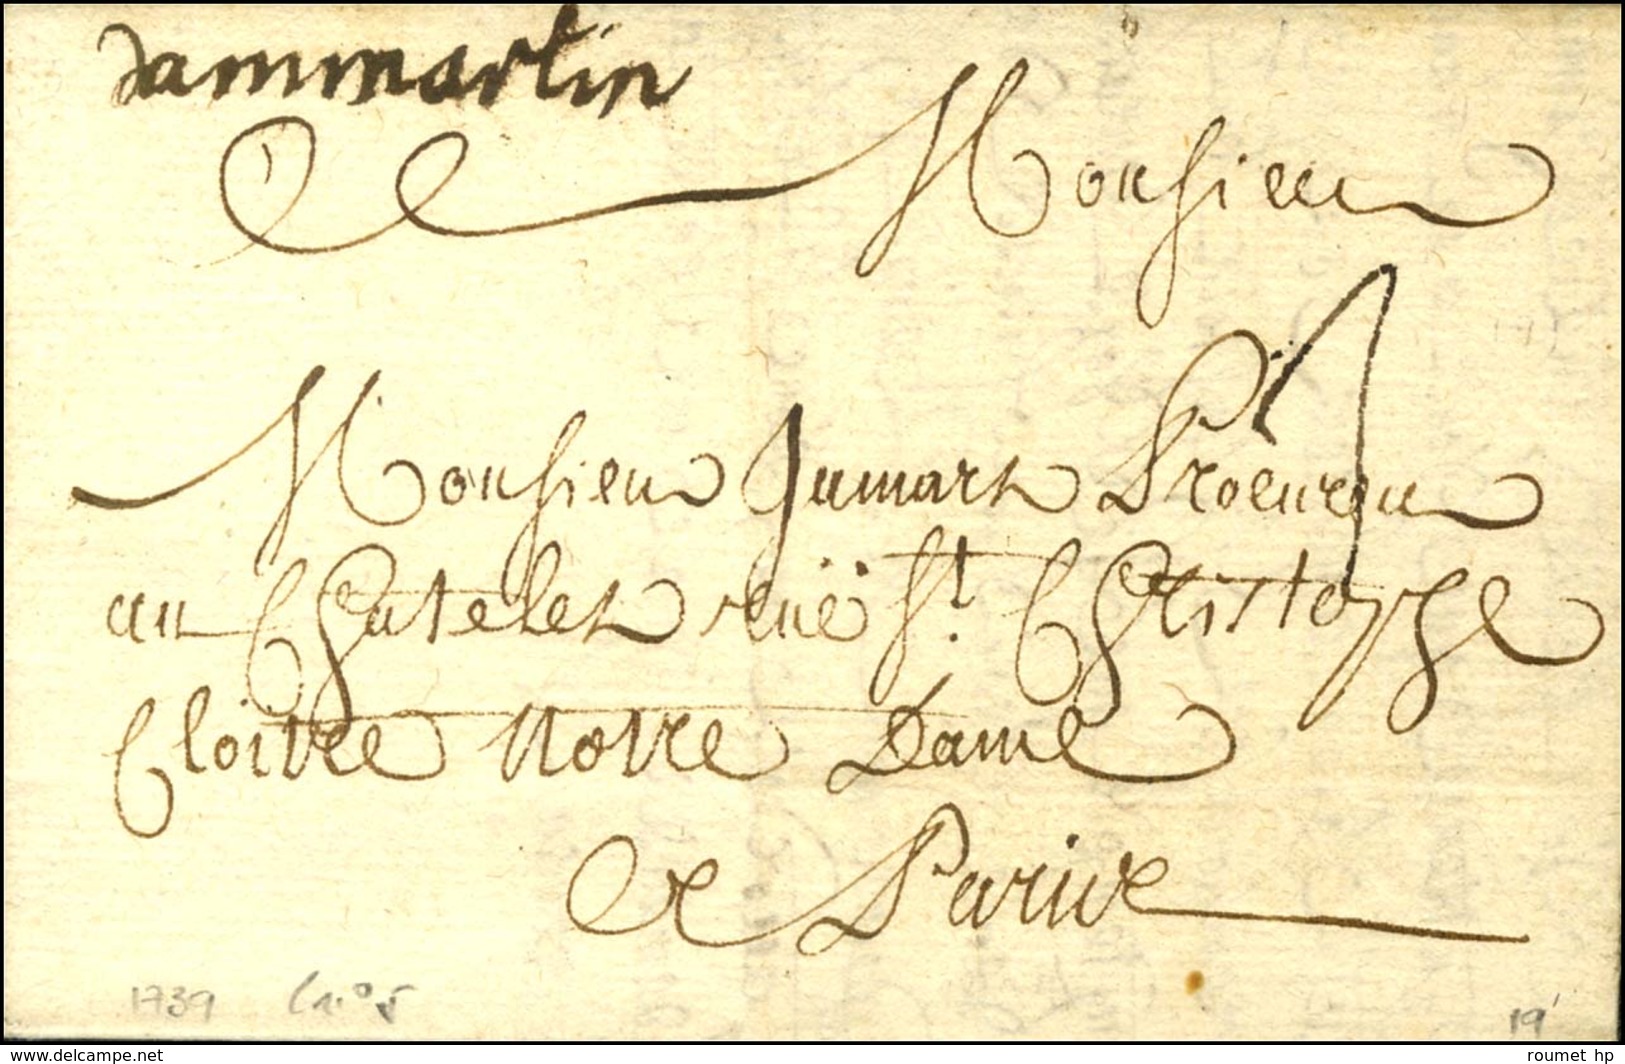 Dammartin
Monsieur
Monsieur Jumart Procureur
au Chatelet ruë St. Christophe
Cloitre Notre Dame
a Paris
1739 (n° 5
19'
www.delcampe.com
roumet hp